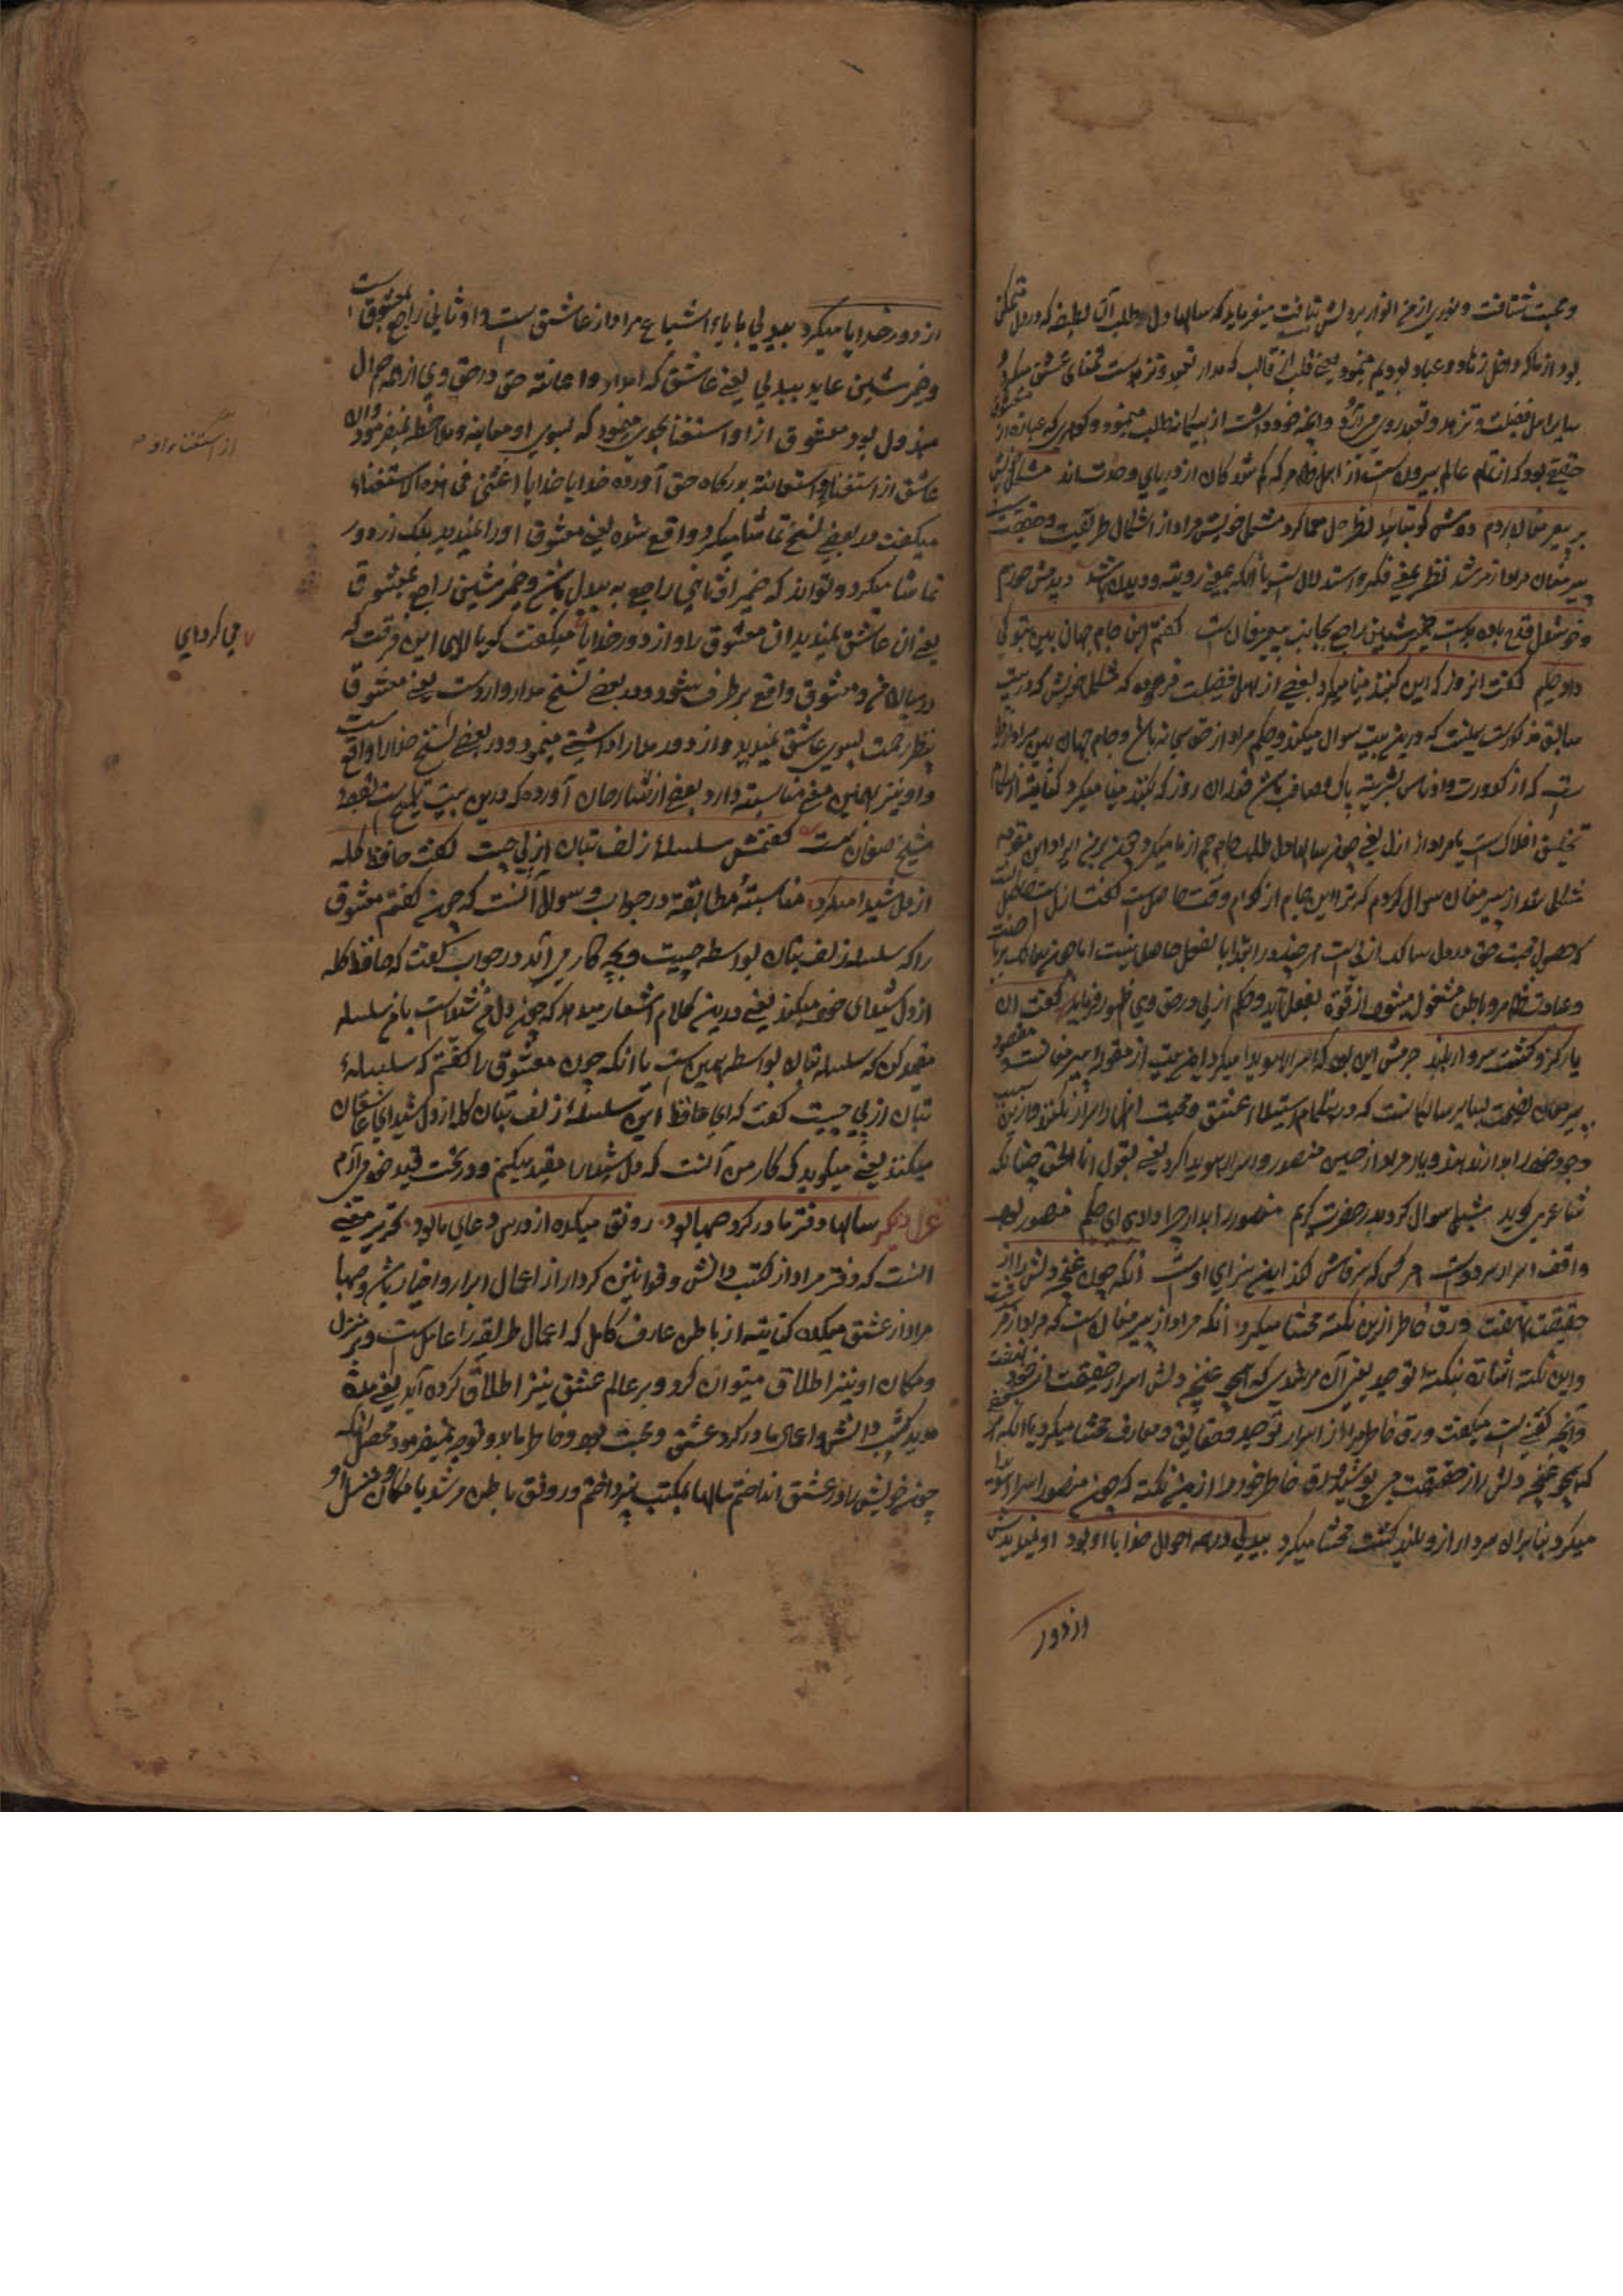 و محبت شتافت و نوری از مخ انوار بر دلش تافت میفرماید که سالها دل طلب آن لطیفه که در دل متمکن
بود از ما که داخل زهاد و عباد بودیم مینمود یعنی قلب از قالب که مدار تعبد و تزهد است تمنای عشق میکرد
سایر اهل فضیلت و تزهد و تعبد روی می آرد و آنچه خود داشت از بیگانه طلب مینمود و گوهری که عبارة از معشوق
حقیقی بود که از تمام عالم بیرون است از اهل ظاهر که گم شدگان از دریای وحدت اند مشکل خویش
بر پیر مغان بردم دوش کو بتایید نظر حل معما کرد مشکل خویش مراد از اشکال طریقت و حقیقت است
پیر مغان مراد از مرشد نظر بمعنی فکر و استدلال است یا آنکه بمعنی رویته و دیدن باشد دیدمش خرم
و خوشدل قدح باده بدست ضمیر شین راجع بجانب پیر مغان است گفتم این جام جهان بین بتو کی
داد حکیم گفت آنروز که این گنبد مینا میکرد بعضی از اهل فضیلت فرموده که مشکل خویش که در بیت
سابق مذکورست اینست که درین بیت سوال میکند و حکیم مراد از حق سبحانه باشد و جام جهان بین مراد از دل
است که از کدورت و ادناس بشریته پاک و صاف باشد و آن روز که گنبد مینا میکرد کنایة از ایام
تخلیق افلاک است یا مراد از ازل یعنی چون سالها دل طلب جام جم از ما میکرد و چون برین ایراد این مقدمه
مشکل شد از پیر مغان سوال کردم که ترا این جام از کدام وقت حاصل است گفت از ازل حاصل است
که حصول محبت حق در دل سالک ازلی است هر چند در ابتدا بالفعل حاصل نیست اما چون سالک بریاضت
و عبادت ظاهر و باطن مشغول میشود از قوة بفعل آید و حکم ازلی در حق وی ظهور فرماید گفت آن
یار کزو گشت سر دار بلند جرمش این بود که اسرار هویدا میکرد این بیت از مقوله پیر مغانست و مقصود
پیر مغان نصیحت بسایر سالکانست که در هنگام استیلاء عشق و محبت اظهار اسرار نکنند و ازین سبب
وجود خود را بر باد ندهند و یار مراد از حسین منصور و اسرار هویدا کرد یعنی بقول انا الحق چنانکه
شاعر می گوید شبلی سوال کرد در حضرت کریم منصور را بدار چرا دادی ای حکیم منصور بود
واقف اسرار سر دوست هر کس که سر فاش کند این سزای اوست آنکه چون غنچه دلش راز
حقیقت بنهفت ورق خاطر ازین نکته محشا میکرد آنکه مراد از پیر مغان است که مراد از مرشد
و این نکته اشارة بنکتهٔ توحید یعنی آن مرشدی که همچو غنچه دلش اسرار حقیقت از خود بنهفت
و آنچه گفتنی است میگفت ورق خاطر ما را از اسرار توحید و حقایق و معارف محشا میکرد یا آنکه هر شخصی
که همچو غنچه دلش راز حقیقت می پوشید ورق خاطر خود را ازین نکته که چون منصور اسرار هویدا
میکرد بنابران سر دار ازو بلند گشت محشا میکرد بیدلی در همه احوال خدا با او بود او نمیدیدش
از دور
از دور خدایا میکرد بیدلی با یای اشباع مراد از عاشق است و او ثانی راجع بمعشوق است
و ضمیر شین عاید ببیدلی یعنی عاشق که امداد و اعانته حق در حق وی از همه احوال
مبذول بود معشوق ازو استغنا بجوی مینمود که بسوی او معاینه و ملاحظه نمیفرمود و آن
عاشق از استغناء او استعانته بدرگاه حق آورده خدایا خدایا اغثنی فی هذه الاستغناء
میگفت در بعضی نسخ تماشا میکرد واقع شده یعنی معشوق او را نمیدید بلکه از دور
تماشا میکرد و تواند که ضمیر او ثانی راجع به بیدل باشد و ضمیر شین راجع بمعشوق
یعنی آن عاشق نمیدید آن معشوق را و از دور خدایا میگفت گویا الهی این فرقت که
در میان من و معشوق واقع برطرف شود و در بعضی نسخ مدارا وارد است یعنی معشوق
بنظر رحمت بسوی عاشق نمیدید و از دور مدارا و آشتی مینمود و در بعضی نسخ خدا را واقع است
و او نیز بهمین معنی مناسبته دارد بعضی از شارحان آورده که درین بیت تلمیح است بقصهٔ
شیخ صنعان است گفتمش سلسلهٔ زلف بتان از پی چیست گفت حافظ گله
از دل شیدا میکرد مناسبته مطابقته در جواب و سوال آنست که چون گفتم معشوق
را که سلسلهٔ زلف بتان بواسطه چیست و بچه کار می آید در جواب گفت که حافظ گله
از دل شیدای خود میکند یعنی درین کلام اشعار میدهد که چون دل من شیداست باین سلسله
مقید کن که سلسله بتان بواسطه همین است یا آنکه چون معشوق را گفتم که سلسلهٔ
بتان از پی چیست گفت که ای حافظ این سلسلهٔ زلف بتان گله از دل شیدای عاشقان
میکند یعنی میگوید که کار من آنست که دل شیدا را مقید میکنم و در تحت قید خود می آرم
غزل دیگر سالها دفتر ما در گرو صهبا بود رونق میکده از درس و دعای ما بود تحریر معنی
آنست که دفتر مراد از کتب دانش و قوانین کردار از اعمال ابرار و اخیار باشد و صهبا
مراد از عشق میکده کنایته از باطن عارف کامل که اعمال طریقه را عامل است و بر منزل
و مکان او نیز اطلاق میتوان کرد و بر عالم عشق نیز اطلاق کرده آید یعنی مدة
مدید کتب دانش و اعمال ما در گرو عشق و محبت بود و خاطر ما بدو توجه نمیفرمود محصل آنکه
چون خویش را در عشق انداختم سالها بمکتب نپرداختم و رونق باطن مرشد یا مکان و منزل او
از استغناء او
می کردای